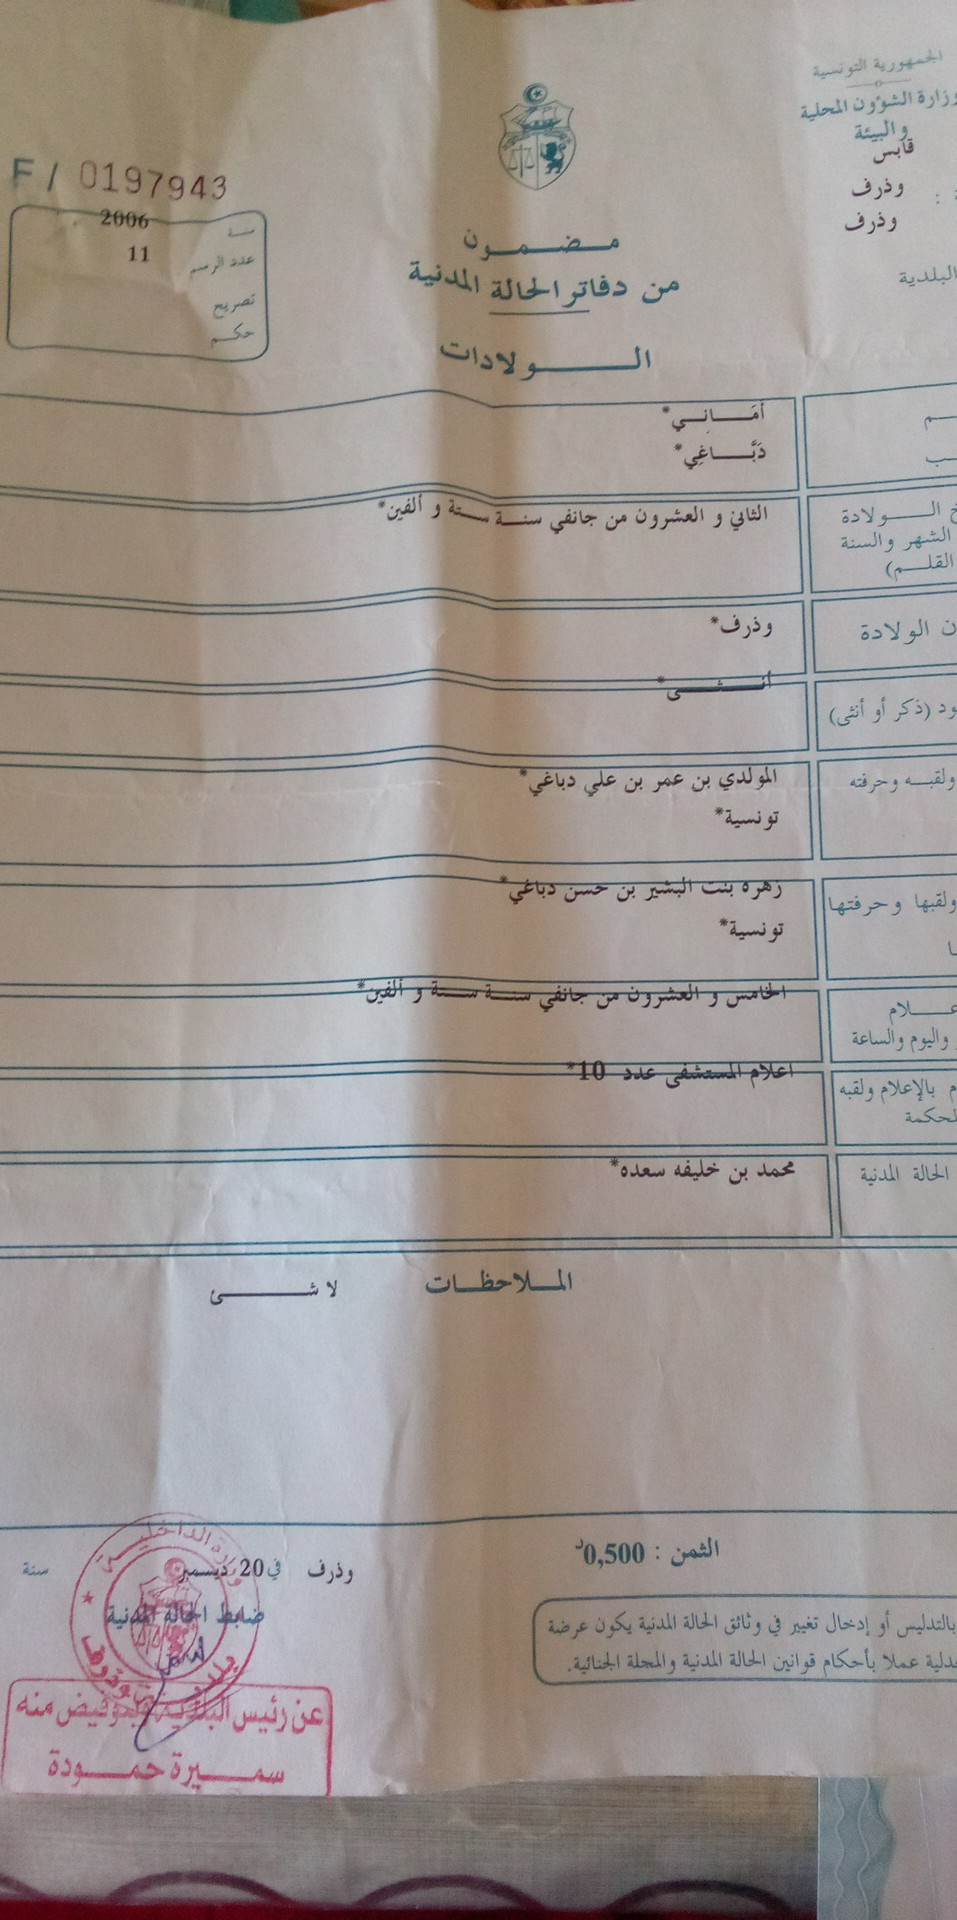 الجمهورية التونسية
وزارة الشؤون المحلية
والبيئة
قابس
وذرف
وذرف
البلدية
F / 0197943
سنة 2006
عدد الرسم 11
تصريح
حكم
مضمون
من دفاتر الحالة المدنية
الولادات
أمَاني*
دَبَّاغِي*
الولادة
الشهر والسنة
القلم)
الثاني و العشرون من جانفي سنة ستة و ألفين*
الولادة
وذرف*
(ذكر أو أنثى)
أنثى*
ولقبه وحرفته
المولدي بن عمر بن علي دباغي*
تونسية*
ولقبها وحرفتها
زهره بنت البشير بن حسن دباغي*
تونسية*
واليوم والساعة
الخامس و العشرون من جانفي سنة ستة و ألفين*
بالإعلام ولقبه
اعلام المستشفى عدد 10*
الحالة المدنية
محمد بن خليفه سعده*
الملاحظات لا شئ
الثمن : 0,500د
وذرف في 20 ديسمبر سنة
ضابط الحالة المدنية
بالتدليس أو إدخال تغيير في وثائق الحالة المدنية يكون عرضة
عملا بأحكام قوانين الحالة المدنية والمجلة الجنائية.
وزارة الداخلية
عن رئيس البلدية وبتفويض منه
سميرة حمودة